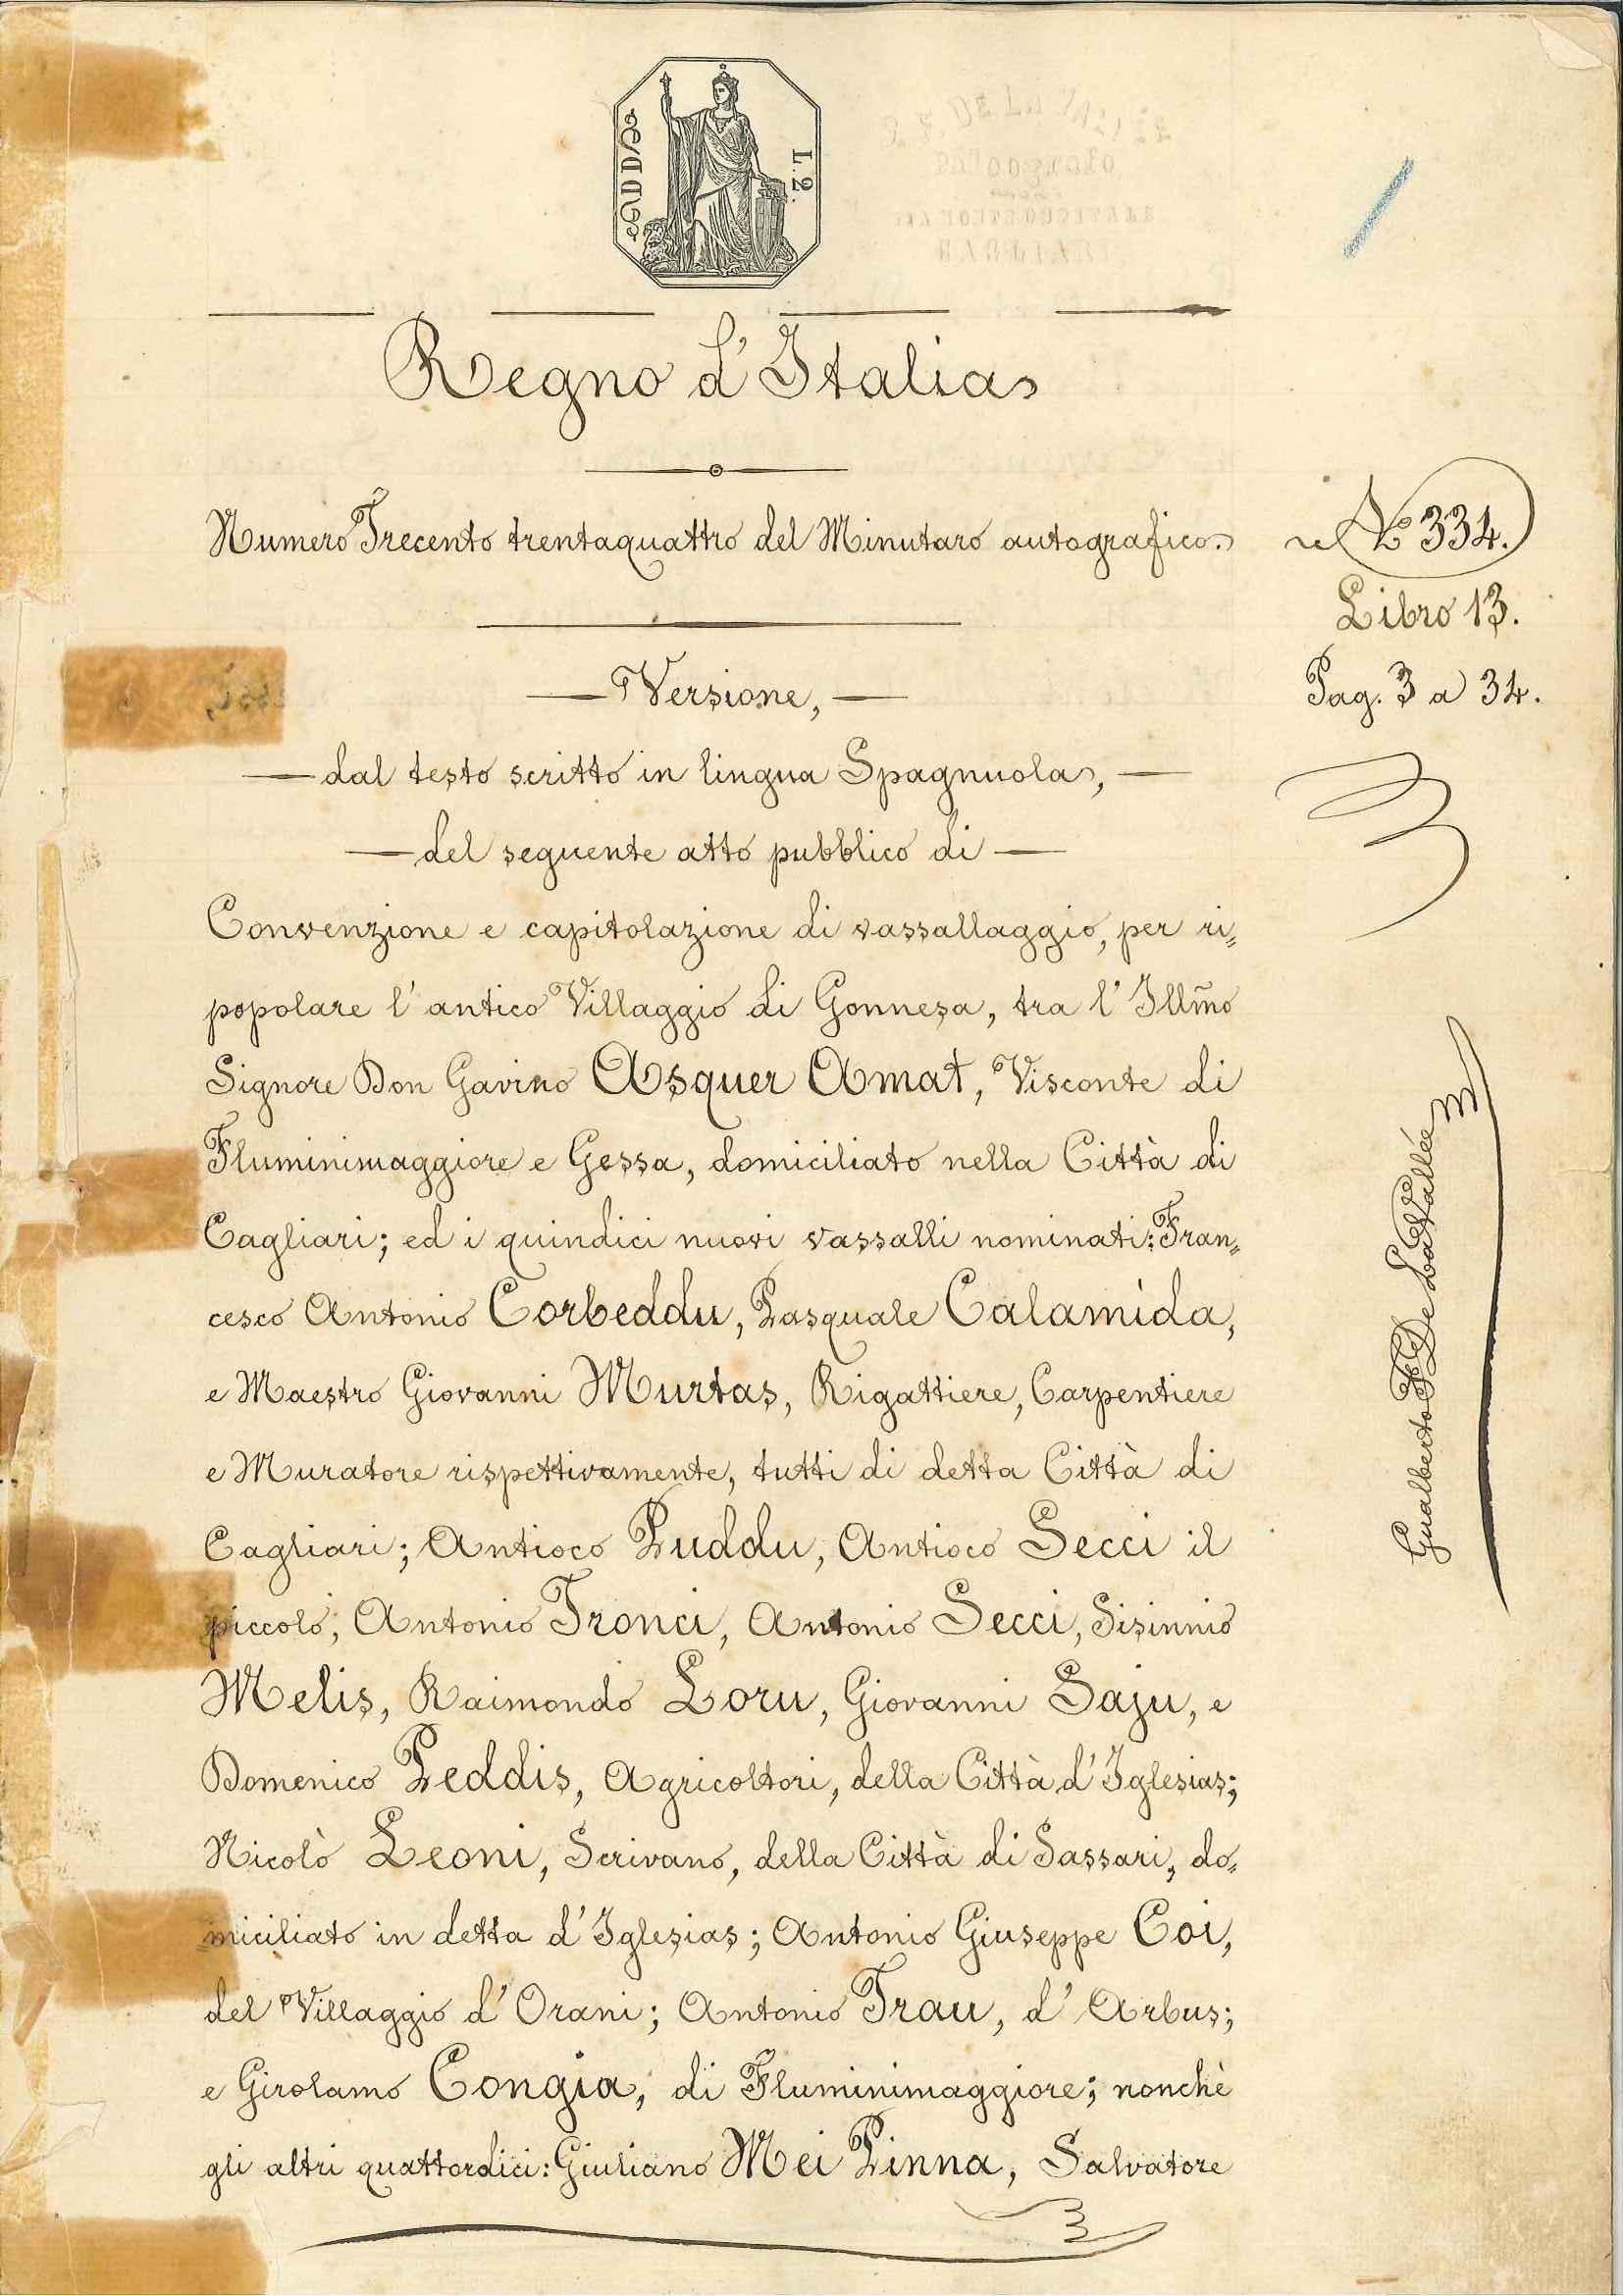 L. 2.
Regno d'Italia
Numero Trecento trentaquattro del Minutaro autografico.
Nº 334.
Libro 13.
Pag. 3 a 34.
Versione,
dal testo scritto in lingua Spagnuola,
del seguente atto pubblico di
Convenzione e capitolazione di vassallaggio, per ri=
popolare l'antico Villaggio di Gonnesa, tra l'Illm̃o
Signore Don Gavino Asquer Amat, Visconte di
Fluminimaggiore e Gessa, domiciliato nella Città di
Cagliari; ed i quindici nuovi vassalli nominati: Fran=
cesco Antonio Corbeddu, Pasquale Calamìda,
e Maestro Giovanni Murtas, Rigattiere, Carpentiere
e Muratore rispettivamente, tutti di detta Città di
Cagliari; Antioco Puddu, Antioco Secci il
piccolo; Antonio Tronci, Antonio Secci, Sisinnio
Melis, Raimondo Loru, Giovanni Saju, e
Domenico Peddis, Agricoltori, della Città d'Iglesias;
Nicolò Leoni, Scrivano, della Città di Sassari, do=
miciliato in detta d'Iglesias; Antonio Giuseppe Coi,
del Villaggio d'Orani; Antonio Trau, d'Arbus;
e Girolamo Congia, di Fluminimaggiore; nonchè
gli altri quattordici: Giuliano Mei Pinna, Salvatore
Gualberto De La Vallée